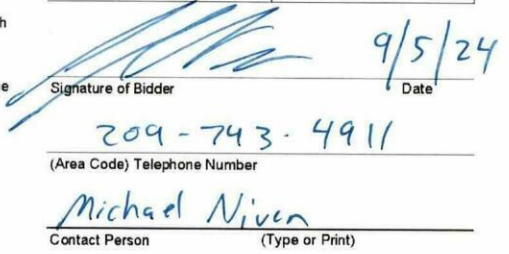 h
9/5/24
e Signature of Bidder Date
209-743-4911
(Area Code) Telephone Number
Michael Niven
Contact Person (Type or Print)